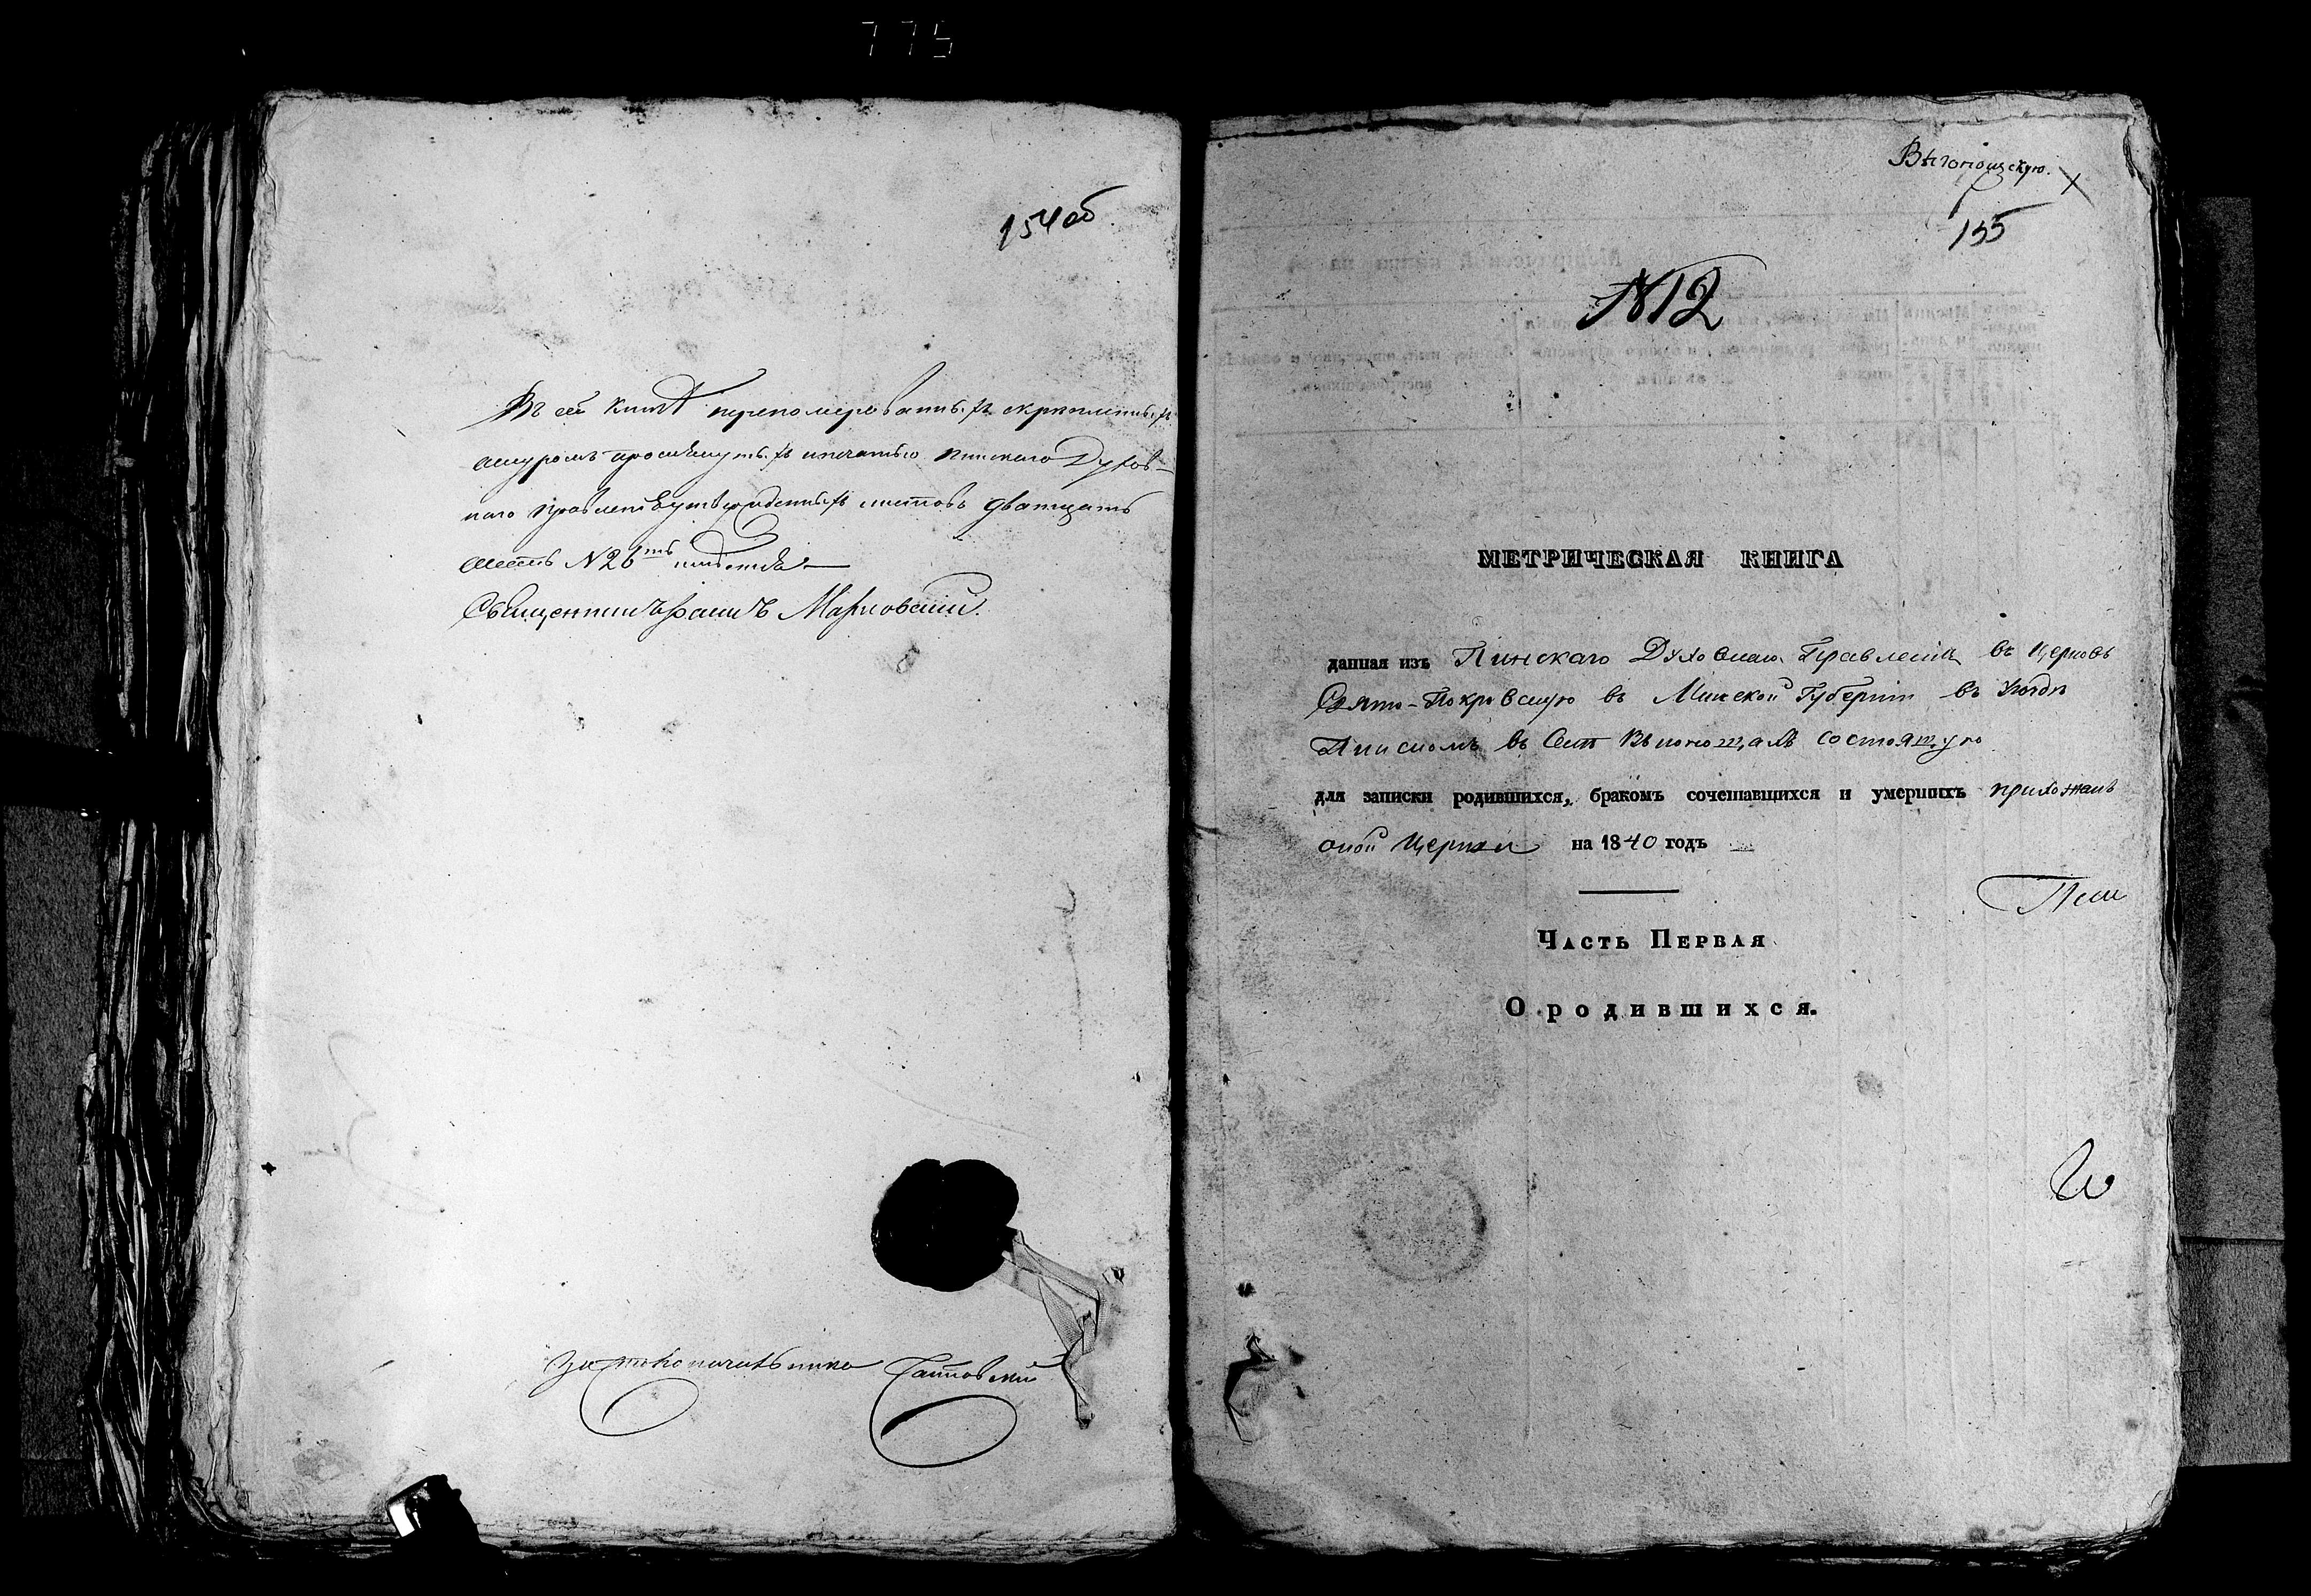 775
154об
Въ сей книгѣ переномерованныхъ скрѣпленныхъ
шнуромъ просѣкнутыхъ и печатью Пинскаго Духов-
наго Правленія утвержденныхъ листовъ дватцать
шесть N 26ть
Священникъ Марковскій
Столоначальника
Вѣгонощскую.
155
N12
МЕТРИЧЕСКАЯ КНИГА
данная изъ Пинскаго Духовнаго Правленія въ Церковь
Свято-Покровскую въ Минской Губерніи въ Уѣздѣ
Пинскомъ въ Селѣ Вѣгонощахъ состоящую
для записки родившихся, бракомъ сочетавщихся и умершихъ прихожанъ
оной Церкви на 1840 годъ
Часть Первая
О родившихся.